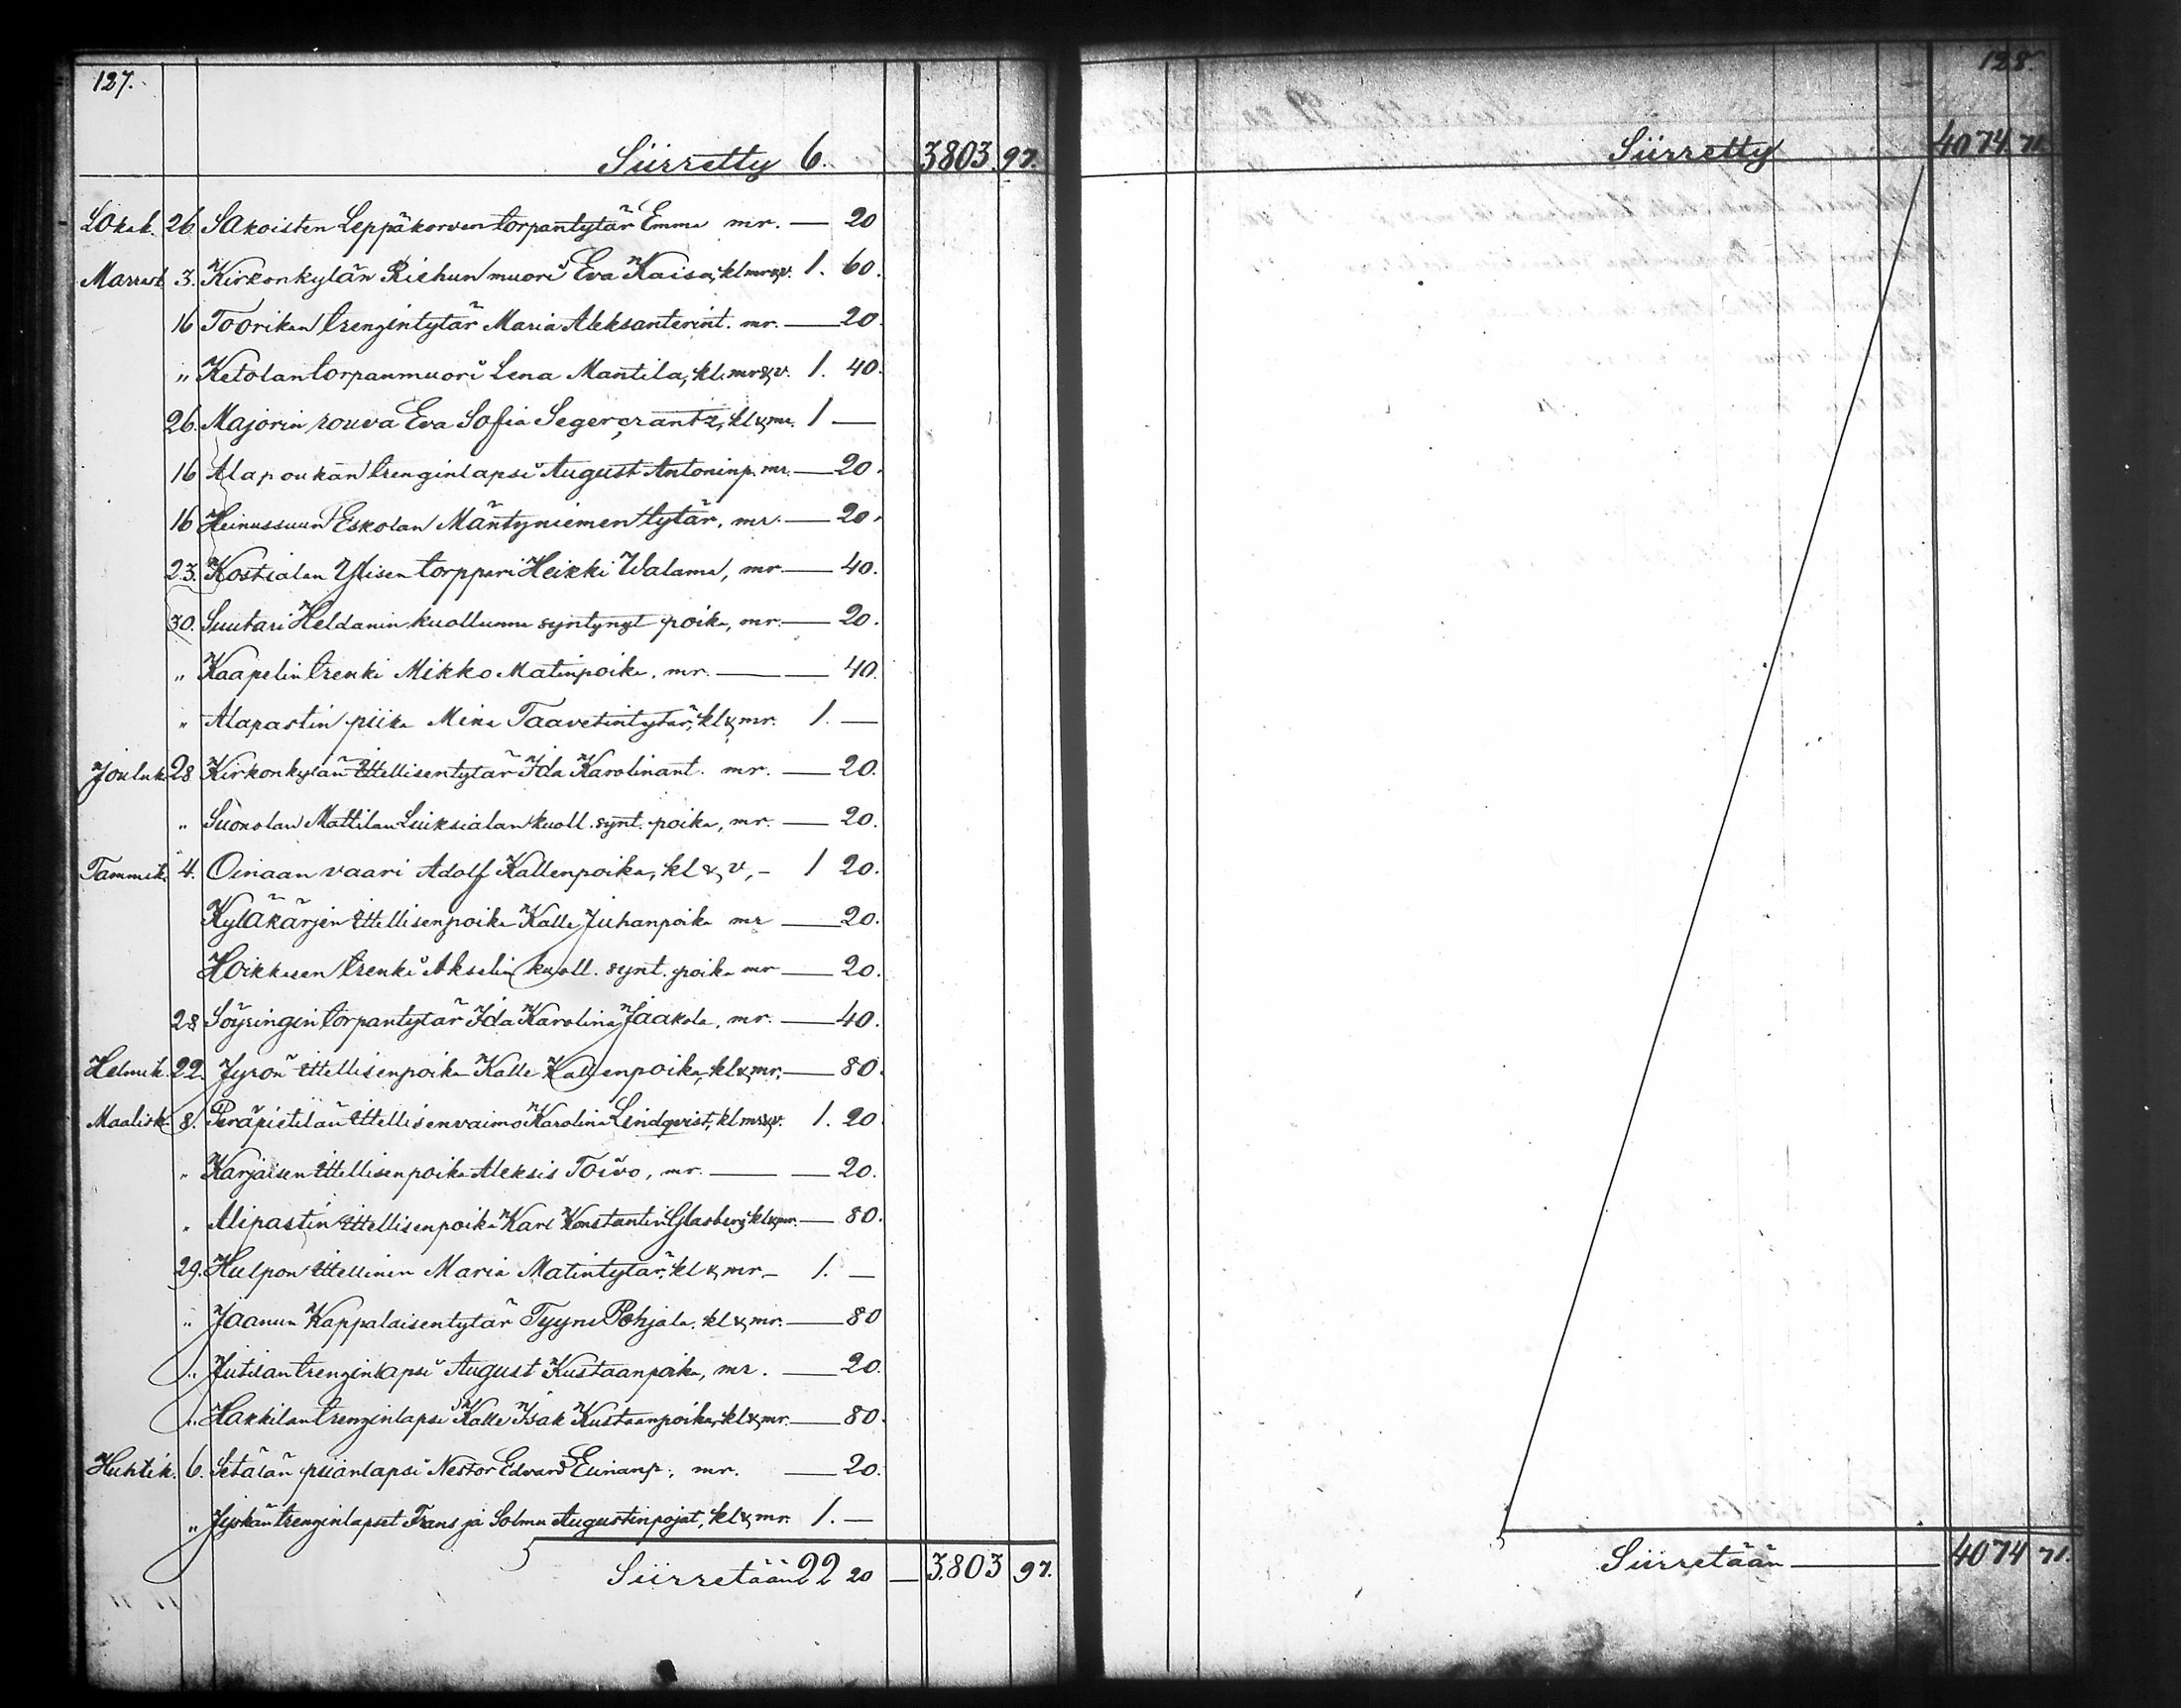 127.
Siirretty 6. 3803. 97.
Lokak. 26 Sakoisten Leppäkorven torpantytär Emma mr. — 20
Marrask 3. Kirkonkylän Riehun muori Eva Kaisa, kl mr & v. 1. 60.
16 Toorikan trengintytär Maria Aleksanterint. mr. — 20.
" Ketolan torpanmuori Lena Mantila, kl. mr & v. 1. 40.
26. Majorin rouva Eva Sofia Segercrantz, kl & mr. 1 —
16 Alapoukan trenginlapsi August Antoninp. mr. — 20.
16 Heinussuun Eskolan Mäntyniemen tytär, mr. — 20.
23. Kostialan Ylisen torppari Heikki Walama, mr. — 40.
30. Suutari Heldanin kuollunna syntynyt poika, mr. — 20.
" Kaapelin trenki Mikko Matinpoika. mr. — — 40.
" Alapastin piika Mina Taavetintytär, kl & mr. 1. —
Jouluk 28 Kirkonkylän ittellisentytär Ida Karolinant. mr. — 20.
" Suonolan Mattilan Liuksialan kuoll. synt. poika, mr. — 20.
Tammik. 4. Oinaan vaari Adolf Kallenpoika, kl & v, - 1 20.
Kyläkärjen ittellisenpoika Kalle Juhanpoika mr — 20.
Hoikkasen trenki Akselin kuoll. synt. poika mr — 20.
28 Söyringin torpantytär Ida Karolina Jaakola, mr. — 40.
Helmik. 22. Jyrön ittellisenpoika Kalle Kallenpoika, kl & mr. — 80.
Maalisk. 8. Peräpietilän ittellisenvaimo Karolina Lindqvist, kl mr & v. 1. 20.
" Karjaisen ittellisenpoika Aleksis Toivo, mr. — — 20.
" Alipastin ittellisenpoika Karl Konstantin Glasberg kl & mr. — 80.
29. Hulpon ittellinen Maria Matintytär, kl & mr. - 1. —
" Jaanun Kappalaisentytär Tyyne Pohjala. kl & mr. — 80
" Jutilan trenginlapsi August Kustaanpoika, mr. — 20.
" Hakkilan trenginlapsi Kalle Isak Kustaanpoika, kl & mr. — 80.
Huhtik. 6. Setälän piianlapsi Nestor Edvard Eerianp., mr. — 20.
" trenginlapset Frans ja Solmu Augustinpojat, kl & mr. 1. —
Siirretään 22 20 — 3803 97.
128.
Siirretty 4074. 71.
Siirretään — 4074 71.